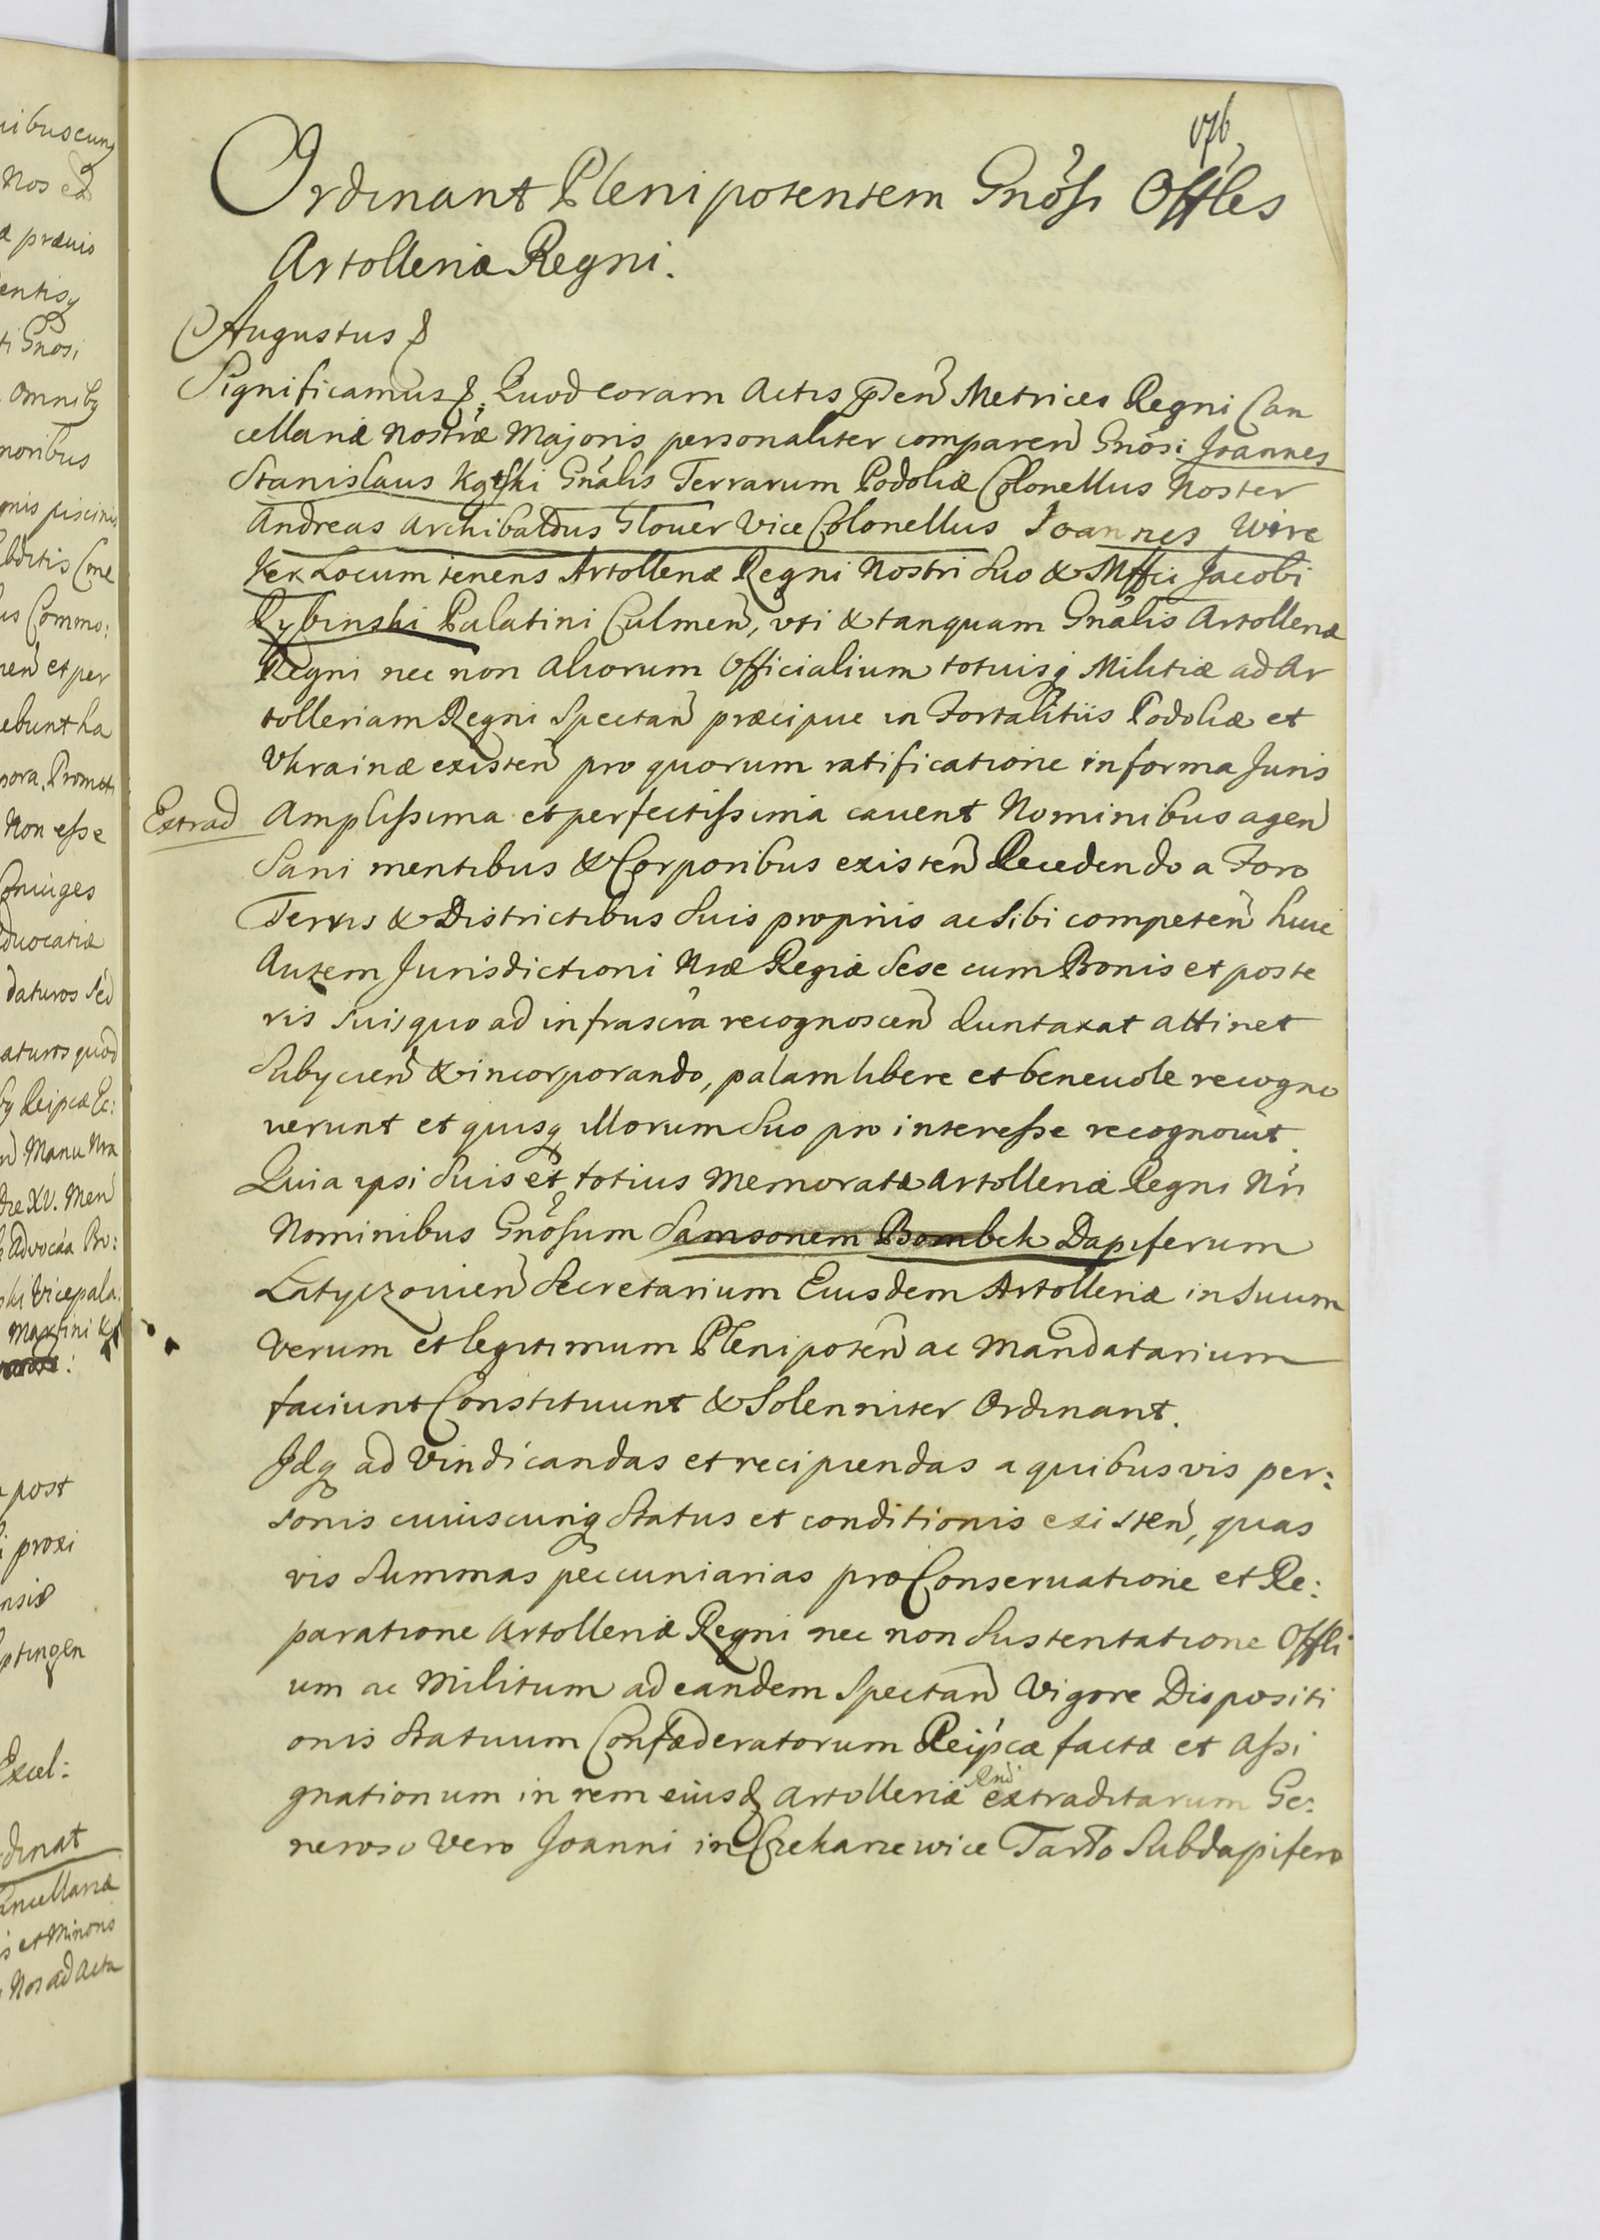 176
Ordinant Plenipotentem Gnõsi Offles
Artolleriæ Regni.
Augustus &
Significamus &. Quod coram Actis p̃sen̄ Metrices Regni Can
cellariæ Nostræ Majoris personaliter comparen̄ Gnõsi Joannes
Stanislaus Kątski Gnãlis Terrarum Podoliæ Colonellus Noster
Andreas Archibaldus Glouer Vice Colonellus Joannes Wire
Locum tenens Artolleriæ Regni Nostri Suo & Mffici Jacobi
Rybinski Palatini Culmen̄, vti & tanquam Gnãlis Artolleriæ
Regni nec non Aliorum Officialium totiusq Militiæ ad Ar
tolleriam Regni Spectan̄ præcipue in Fortalitiis Podoliæ et
Vkrainæ existen̄ pro quorum ratificatione in forma Juris
Extrad
Amplissima et perfectissima cauent Nominibus agen̄
Sani mentibus & Corporibus existen̄ Recedendo a Foro
Terris & Districtibus Suis proprijs ac Sibi competen̄ huic
Autem Jurisdictioni Nræ Regiæ Sese cum Bonis et poste
ris suis quo ad infrascra recognoscen̄ duntaxat attinet
Subycien̄ & incorporando, palam libere et beneuole recogno
uerunt et quisq illorum Suo pro interesse recognouit.
Quia ipsi Suis et totius Memoratæ Artolleriæ Regni Nri
Nominibus Gnõsum Samsonem Bombek Dapiferum
Latyczouien̄ Secretarium Eiusdem Artolleriæ in Suum
Verum et legitimum Plenipoten̄ ac Mandatarium
faciunt Constituunt & Solenniter Ordinant.
Idq ad Vindicandas et recipiendas a quibusvis per:
sonis cuiuscunq Status et conditionis existen̄, quas
vis Summas peccuniarias pro Conseruatione et Re:
paratione Artolleriæ Regni nec non Sustentatione Offli
um ac Militum ad eandem Spectan̄ Vigore Dispositi
onis Statuum Confæderatorum Reipcæ factæ et Assi
gnationum in rem eiusd Artolleriæ extraditarum Ge:
neroso Vero Joanni in Czekarzewice Tarło Subdapifero